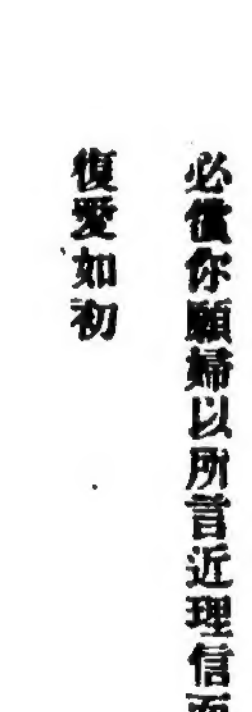 必償你願婦以所言近理信而
復愛如初